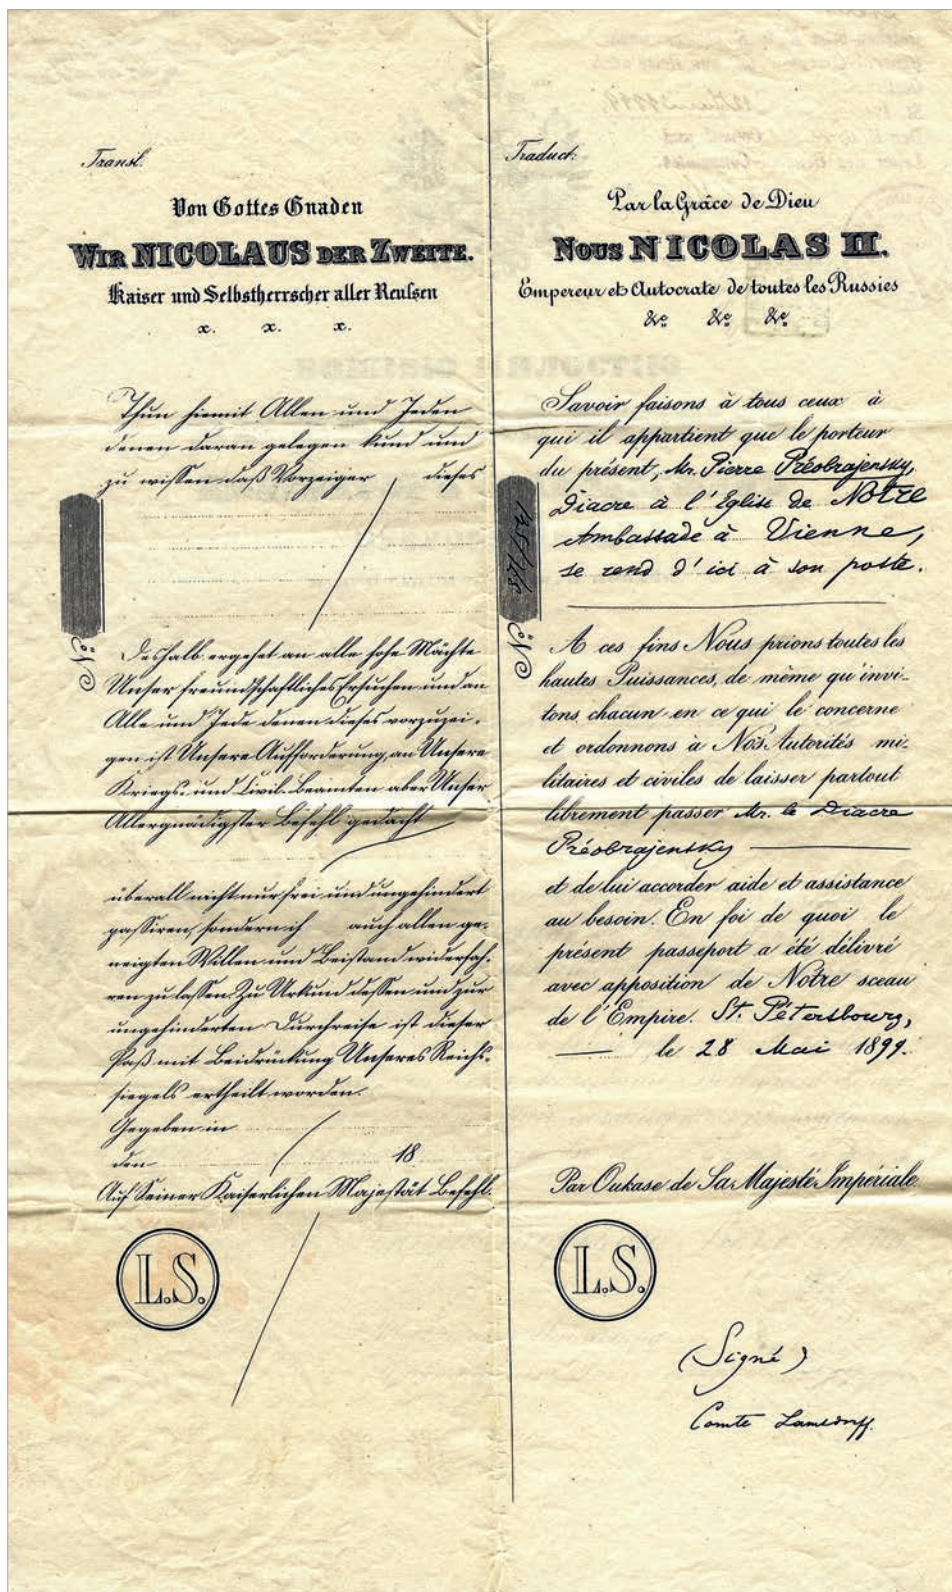 Transl.
Von Gottes Gnaden
WIR NICOLAUS DER ZWEITE.
Kaiser und Selbstherrscher aller Reußen
x. x. x.
Thun hiemit Allen und Jeden
denen daran gelegen kund und
zu wissen daß Vorzeiger dieses
No:
Deshalb ergehet an alle hohe Mächte
Unser freundschaftliches Ersuchen und an
Alle und Jede denen dieses vorzuzei-
gen ist Unsere Aufforderung, an Unsere
Kriegs- und Civil-Beamten aber Unser
Allergnädigster Befehl gedacht
überall nicht nur frei und ungehindert
passiren, sondern ih auch allen ge-
neigten Willen und Beistand widerfah-
ren zu lassen. Zu Urkund dessen und zur
ungehinderten Durchreise ist dieser
Paß mit Beidrückung Unseres Reichs-
siegels ertheilt worden.
Gegeben in
den 18
Auf Seiner Kaiserlichen Majestät Befehl.
L.S.
Traduct:
Par la Grâce de Dieu
NOUS NICOLAS II.
Empereur et Autocrate de toutes les Russies
&c &c &c
Savoir faisons à tous ceux à
qui il appartient que le porteur
du présent, Mr. Pierre Préobrajensky,
Diacre à l'Eglise de Notre
Ambassade à Vienne,
se rend d'ici à son poste.
No:
A ces fins Nous prions toutes les
hautes Puissances, de même qu'invi-
tons, chacun en ce qui le concerne
et ordonnons à Nos Autorités mi-
litaires et civiles de laisser partout
librement passer Mr. le Diacre
Préobrajensky
et de lui accorder aide et assistance
au besoin. En foi de quoi le
présent passeport a été délivré
avec apposition de Notre sceau
de l'Empire. St. Pétersbourg,
le 28 Mai 1899.
Par Oukase de Sa Majesté Impériale.
L.S.
(Signé)
Comte Lamsdorff.